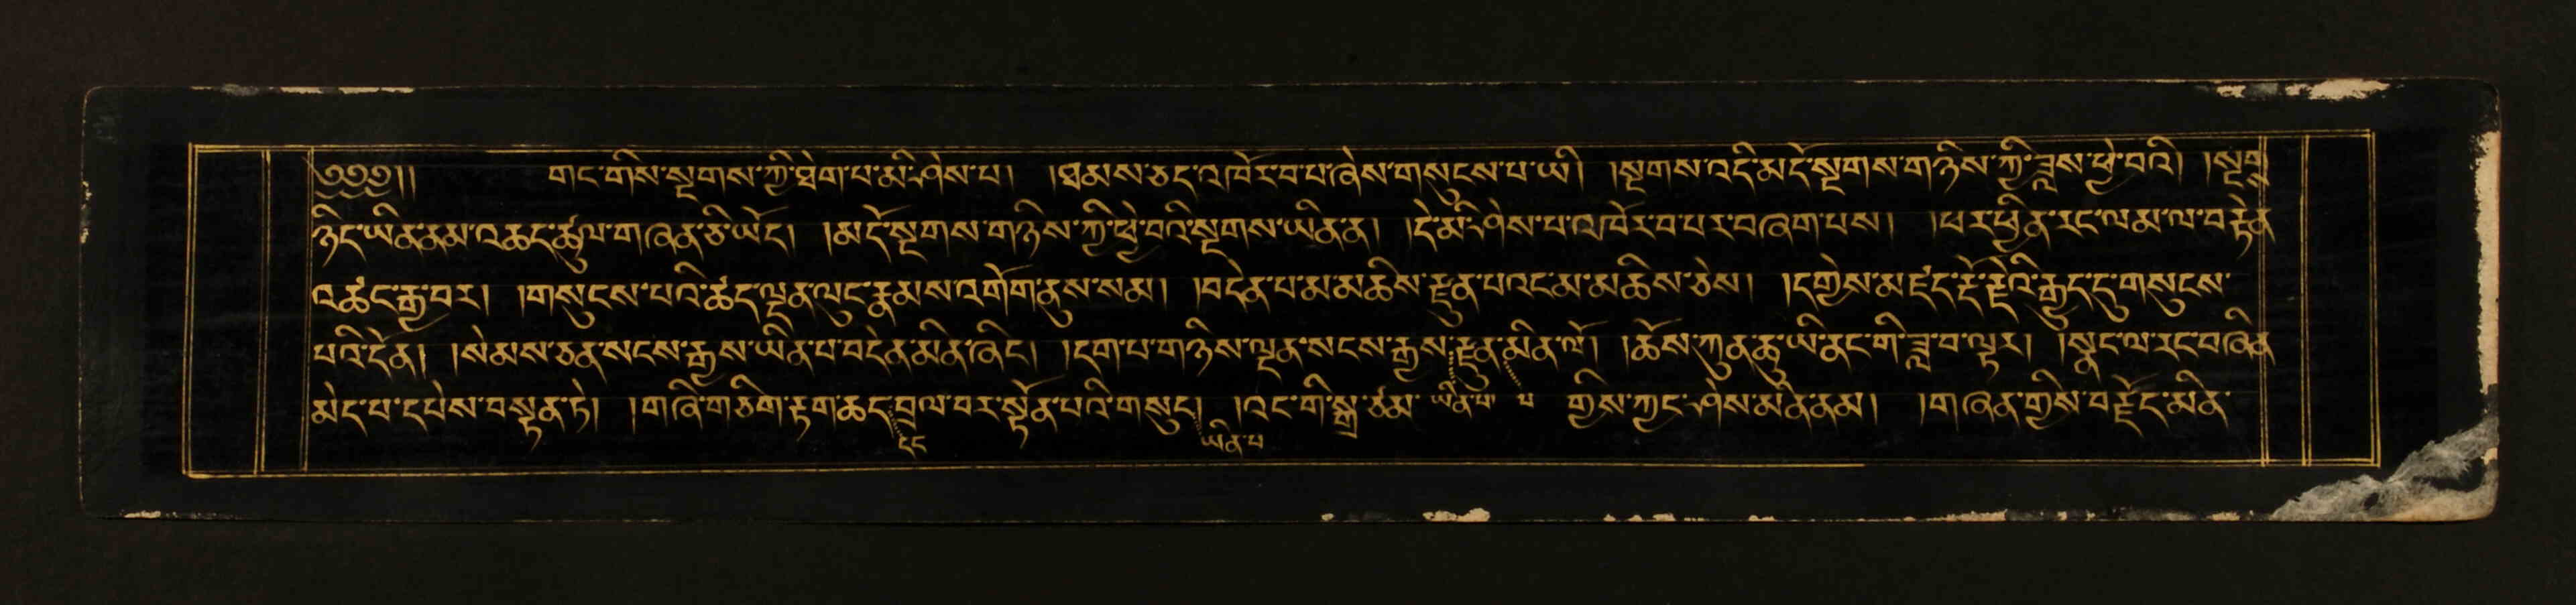 ༄༅༅།། གང་གིས་སྔགས་ཀྱི་ཐེག་པ་མི་ཤེས་པ། །ཐམས་ཅད་འཁོར་བ་པ་ཞེས་གསུངས་པ་ཡི། །སྔགས་འདི་མདོ་སྔགས་གཉིས་ཀྱི་ཟླས་ཕྱེ་བའི། །སྔགས
ཉིད་ཡིན་ནམ་འཆད་ཚུལ་གཞན་ཅི་ཡོད། །མདོ་སྔགས་གཉིས་ཀྱི་ཕྱེ་བའི་སྔགས་ཡིན་ན། །དེ་མི་ཤེས་པ་འཁོར་བ་པར་བཞག་པས། །ཕར་ཕྱིན་རང་ལམ་ལ་བརྟེན
འཚང་རྒྱ་བར། །གསུངས་པའི་ཚད་ལྡན་ལུང་རྣམས་འགོག་ནུས་སམ། །བདེན་པ་མ་མཆིས་རྫུན་པའང་མ་མཆིས་ཅེས། །དགྱེས་མཛད་རྡོ་རྗེའི་རྒྱུད་དུ་གསུངས་
པའི་དོན། །སེམས་ཅན་སངས་རྒྱས་ཡིན་པ་བདེན་མིན་ཞིང། །དག་པ་གཉིས་ལྡན་སངས་རྒྱས་རྫུན་མིན་ལོ། །ཆོས་ཀུན་ཆུ་ཡི་ནང་གི་ཟླ་བ་ལྟར། །སྣང་ལ་རང་བཞིན
མེད་པ་དཔེས་བསྟན་ཏེ། །གཞི་གཅིག་རྟག་ཆད་བྲལ་བར་སྟོན་པའི་གསུང། །འང་གི་སྒྲ་ཙམ་ ཡིན་པ་ པ གྱིས་ཀྱང་ཤེས་མིན་ནམ། །གཞན་གྱིས་བརྗོད་མིན་
ཡིན་པ